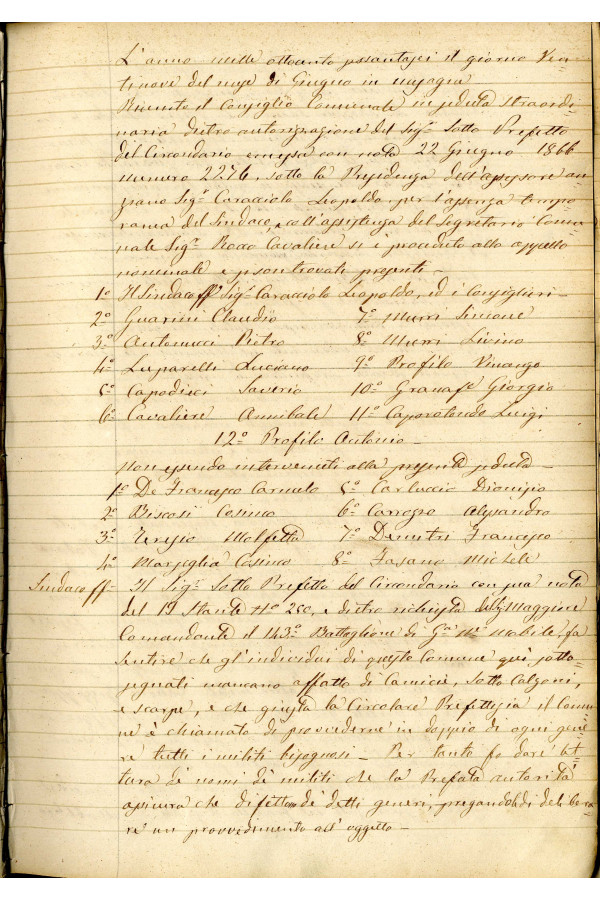 L'anno mille ottocento sessantasei il giorno Ven
tinove del mese di Giugno in
Riunito il Consiglio Comunale in seduta straordi
naria dietro autorizzazione del Sigr Sotto Prefetto
del Circondario emessa con nota 22 Giugno 1866
numero 2276, sotto la Presidenza dell'assessore an
ziano Sigr Caracciolo Leopoldo, per l'assenza tempo
ranea del Sindaco, e coll'assistenza del Segretario Comu
nale Sigr Rocco Cavaliere si è proceduto allo appello
nominale e si son trovati presenti -
1o Il Sindaco ff. Sigr Caracciolo Leopoldo, ed i Consiglieri -
2o Guarini Claudio 7o Murri Simone
3o Antonucci Pietro 8o Murri Livino
4o Luparelli Luciano 9o Profilo Vinango
5o Capodieci Saverio 10o Granafe Giorgio
6o Cavaliere Annibale 11o Caporotondo Luigi
12o Profilo Antonio -
Non essendo intervenuti alla presente seduta -
1o De Francesco Carmelo 5o Carluccio Dionisio
2o Biscosi Cosimo 6o Carrozzo Alessandro
3o Tersio Molfetta 7o Demitri Francesco
4o Marsiglia Cosimo 8o Fasano Michele
Sindaco ff - Il Sigr Sotto Prefetto del Circondario con sua nota
del 19 stante No 200, e dietro richiesta del Maggiore
Comandante il 143o Battaglione di Ga Na Mobile, fa
sentire che gl'individui di questo Comune qui sotto
segnati mancano affatto di Camicie, Sotto Calzoni,
e scarpe, e che giusta la Circolare Prefettizia il Comu
ne è chiamato di provvederne in doppio di ogni gene
re tutti i militi bisognosi - Per tanto fa dare let
tura de' nomi de' militi che la Prefata autorità
assicura che difettano de' detti generi, pregandoli delibera
re un provvedimento all'oggetto -